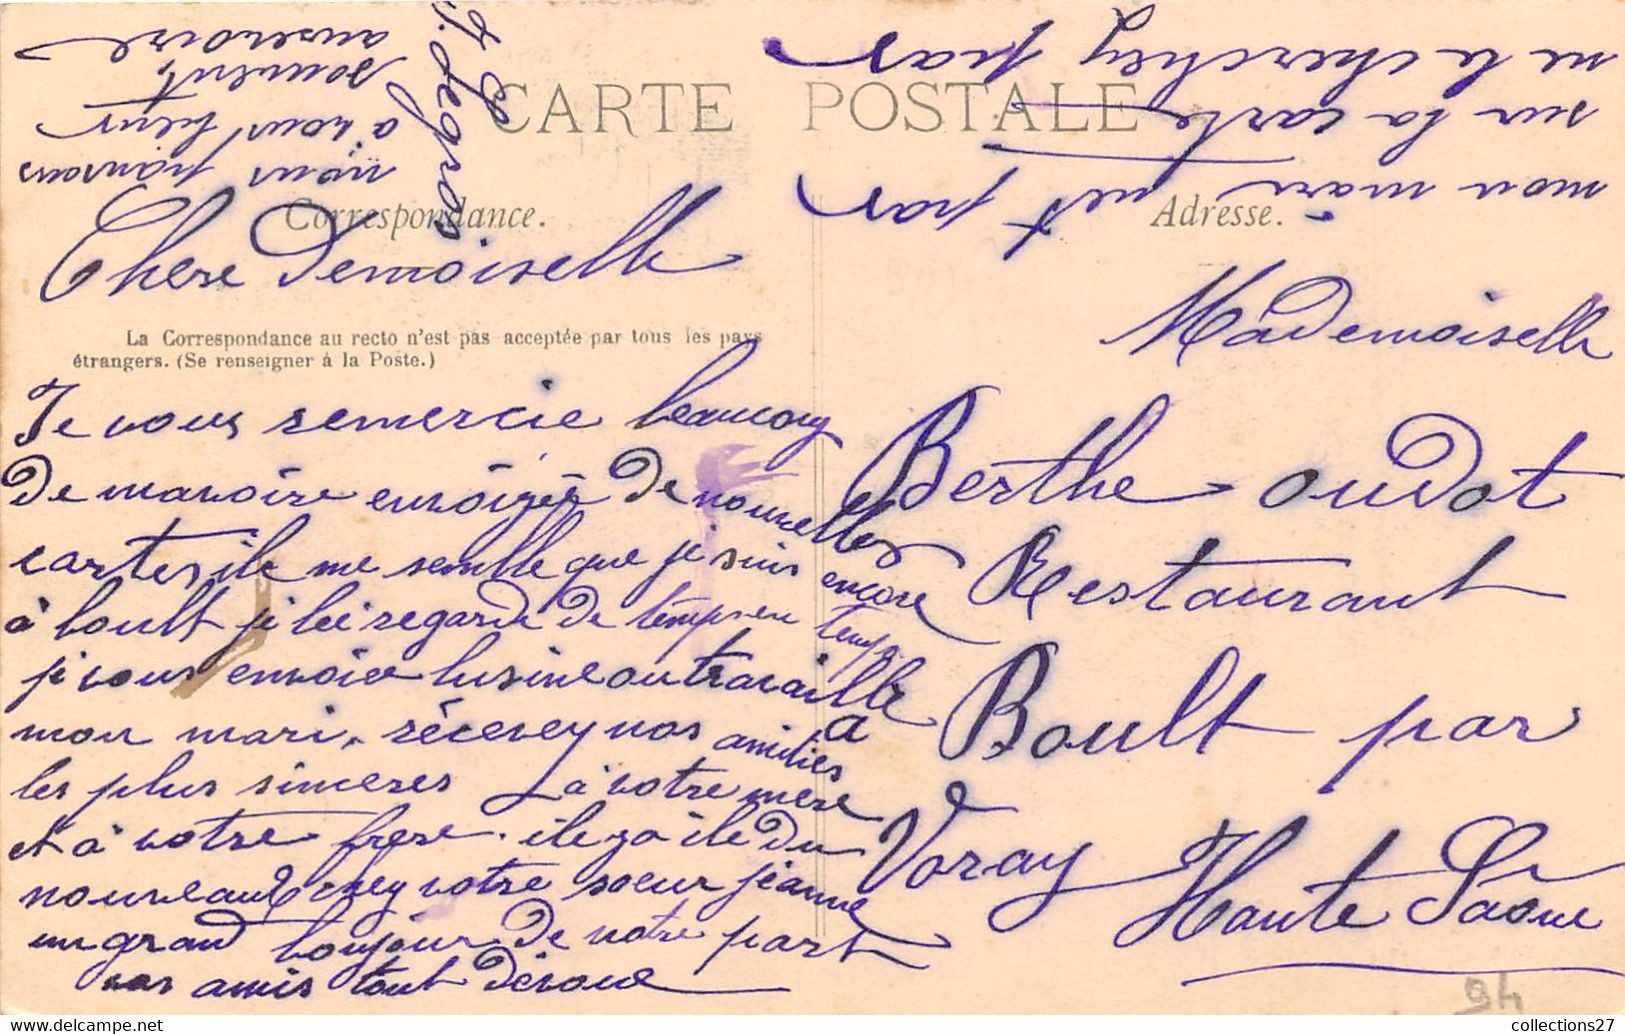 CARTE POSTALE
Correspondance.
Adresse.
La Correspondance au recto n'est pas acceptée par tous les pays
étrangers. (Se renseigner à la Poste.)
Chere Demoiselle
Je vous remercie beaucoup
De mavoire envoiyér De nouvelles
cartes ile me semble que je suis encore
à boult je léi regarde De temps en temps
je vous envoie lusine ou travaille
mon mari. récevey nos amitiés
les plus sinceres à votre mere
et à votre frere. ile ya ile Du
nouveau chey votre soeur jeanne
un grand bonjour De notre part
vos amis tout Déroue
nous pansons
à vous bien
souvent
auseroire
J. Legros
mon mari n'est pas
sur la carte
ne le cherchey pas
Mademoiselle
Berthe oudot
Restaurant
Boult par
Voray
Haute Saône
94
collections27